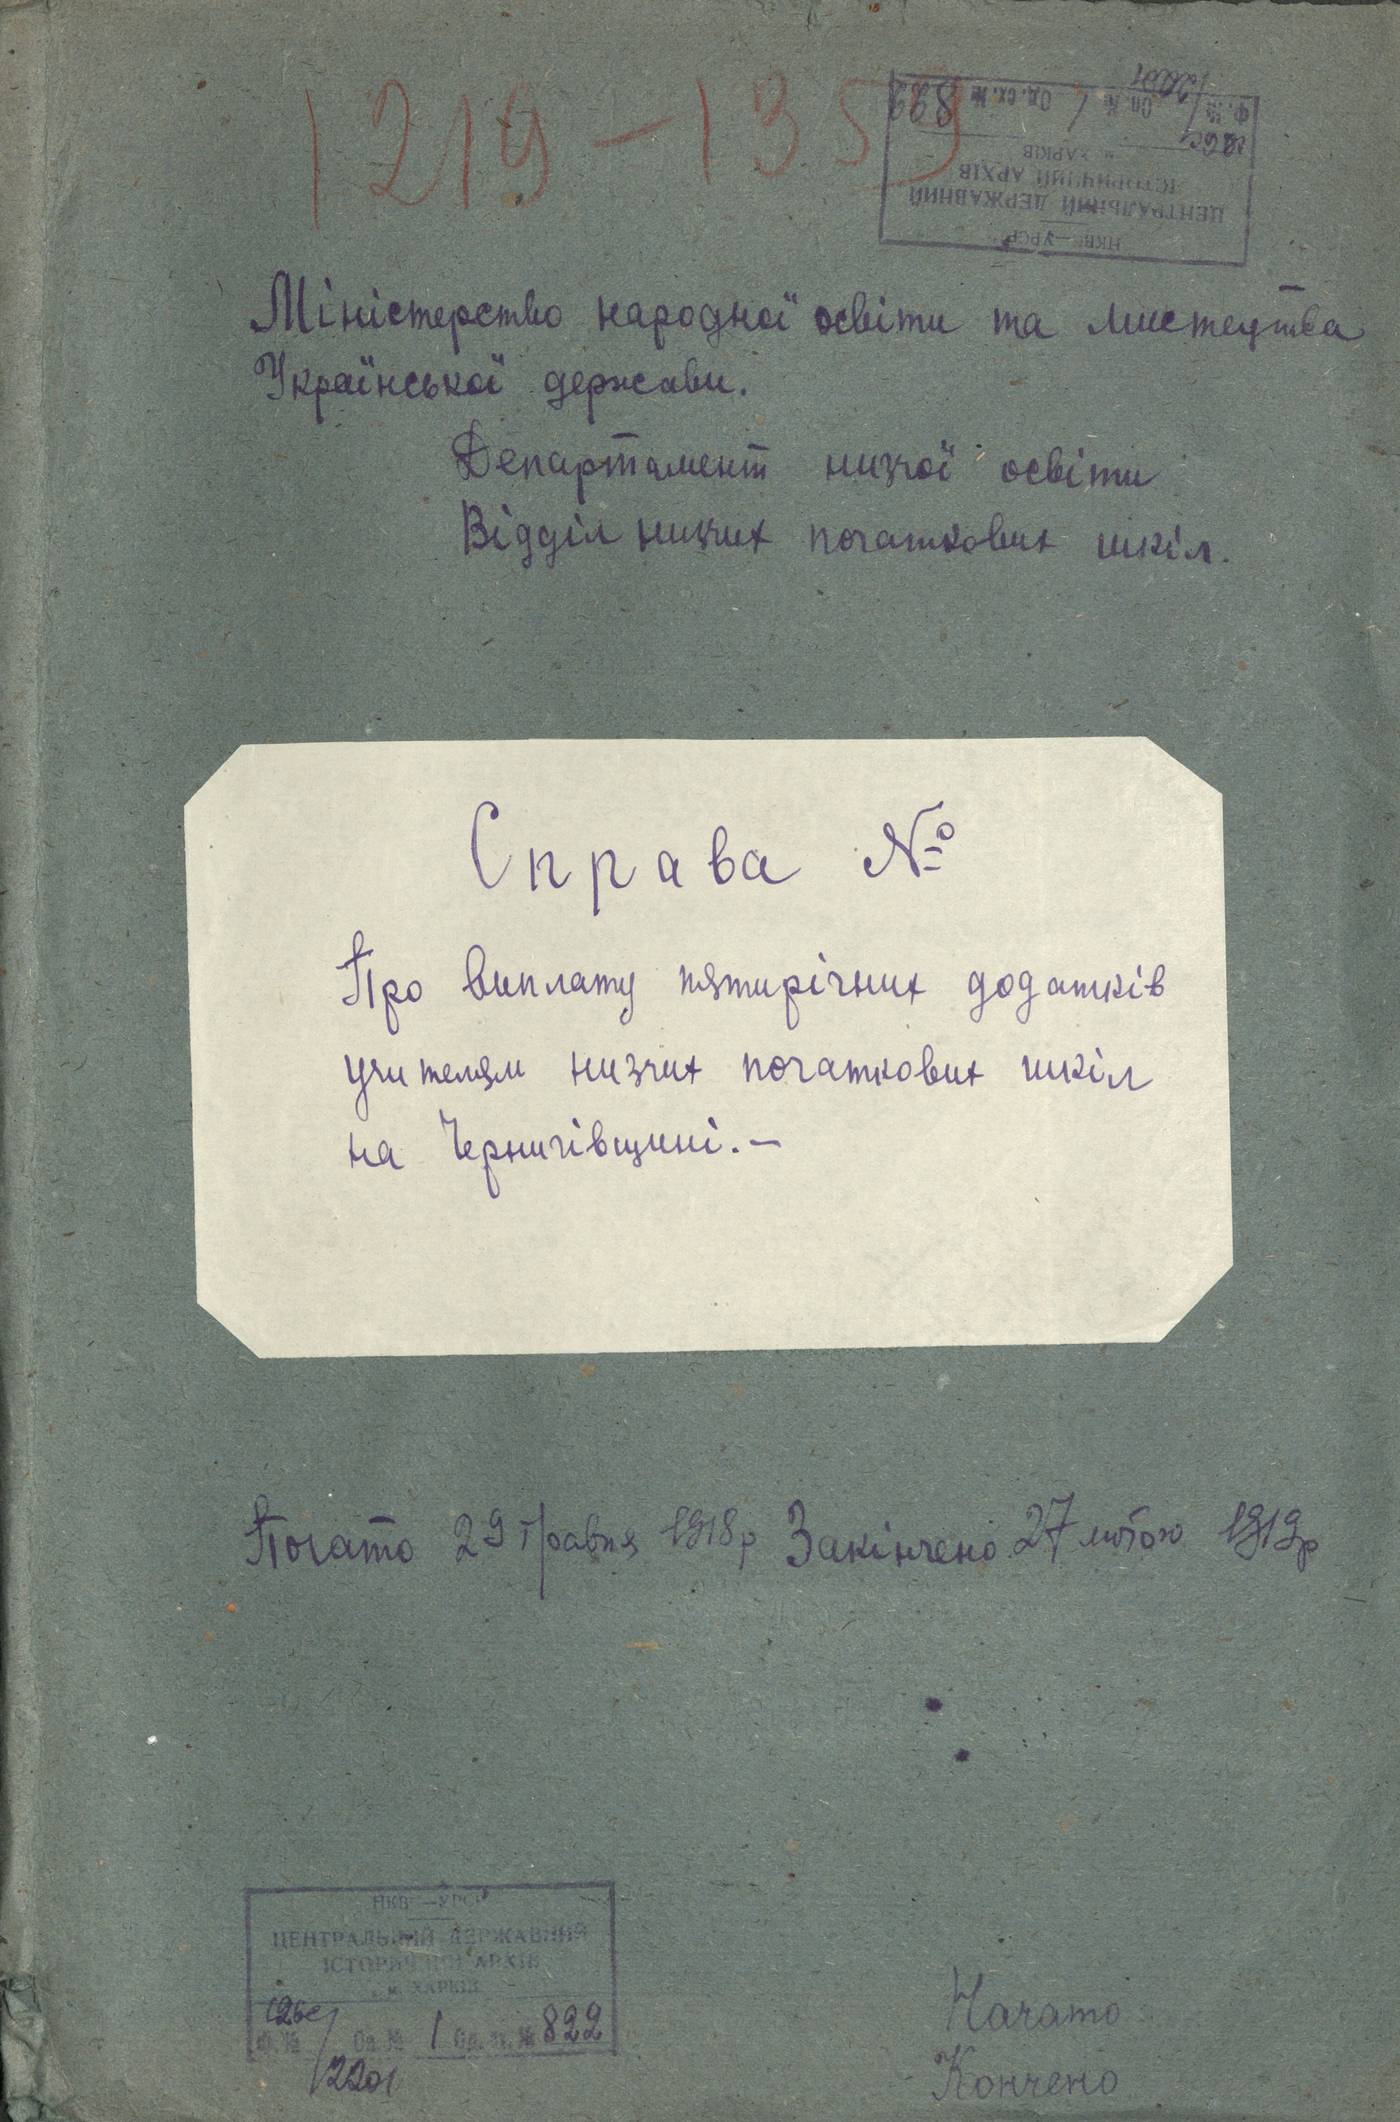 1219-1359
НКВС—УРСР
ЦЕНТРАЛЬНИЙ ДЕРЖАВНИЙ
ІСТОРИЧНИЙ АРХІВ
м. ХАРКІВ
Ф. № Оп. № 1 Од. сх. № 822
2201
Міністерство народної освіти та мистецтва
Української держави.
Департамент низчої освіти
Відділ низчих початкових шкіл.
Справа №
Про виплату пятирічних додатків
учителям низчих початкових шкіл
на Чернигівщині.—
Почато 29 травня 1918р Закінчено 27 лютого 1919р
НКВС—УРСР
ЦЕНТРАЛЬНИЙ ДЕРЖАВНИЙ
ІСТОРИЧНИЙ АРХІВ
м. ХАРКІВ
Ф. № Оп. № 1 Од. зб. № 822
2201
Начато
Кончено